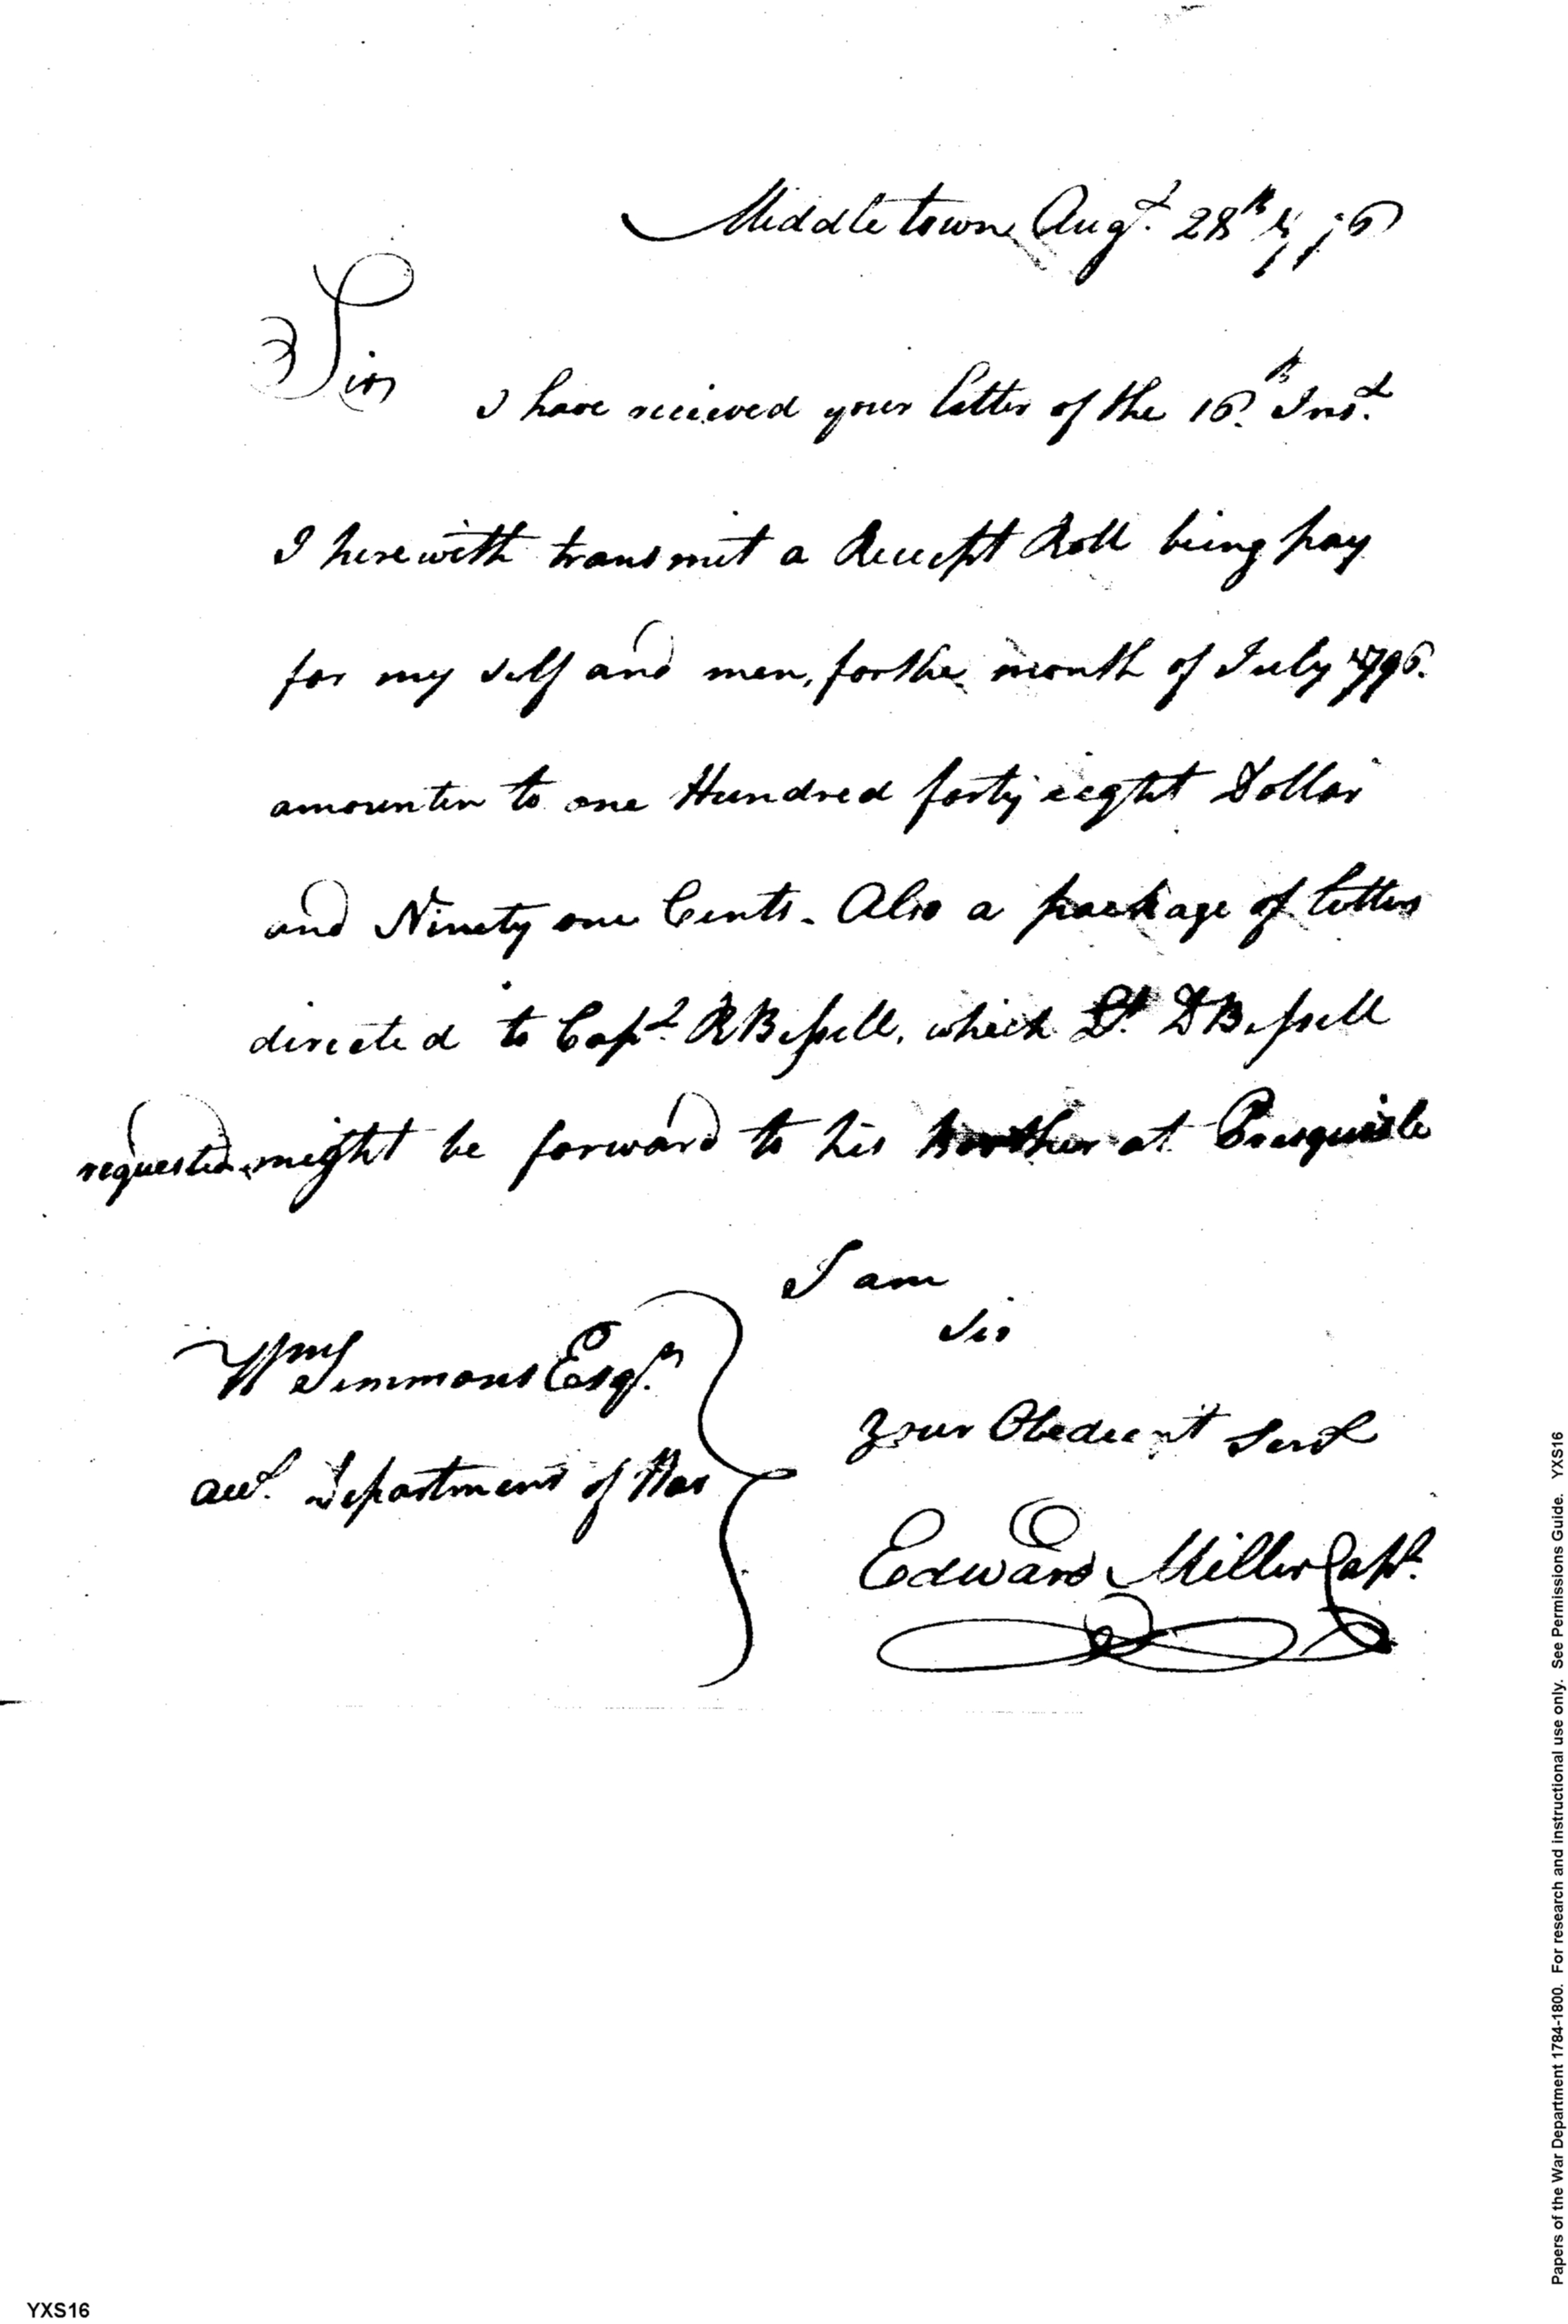 Middletown Augt. 28th 1796
Sir
I have recieved your letter of the 16th. Inst.
I herewith transmit a Receipt Roll being pay
for my self and men, for the month of July 1796.
amountin to one Hundred forty eight Dollar
and Ninety one Cents. Also a package of letters
directed to Capt R Bissell, which Lt. D Bissell
requested might be forward to his brother at Presquisle
I am
Sir
Wm Simmons Esqr.
Acct. Department of War
Your Obedient Servt
Edward Miller Capt.
YXS16
Papers of the War Department 1784-1800. For research and instructional use only. See Permissions Guide. YXS16